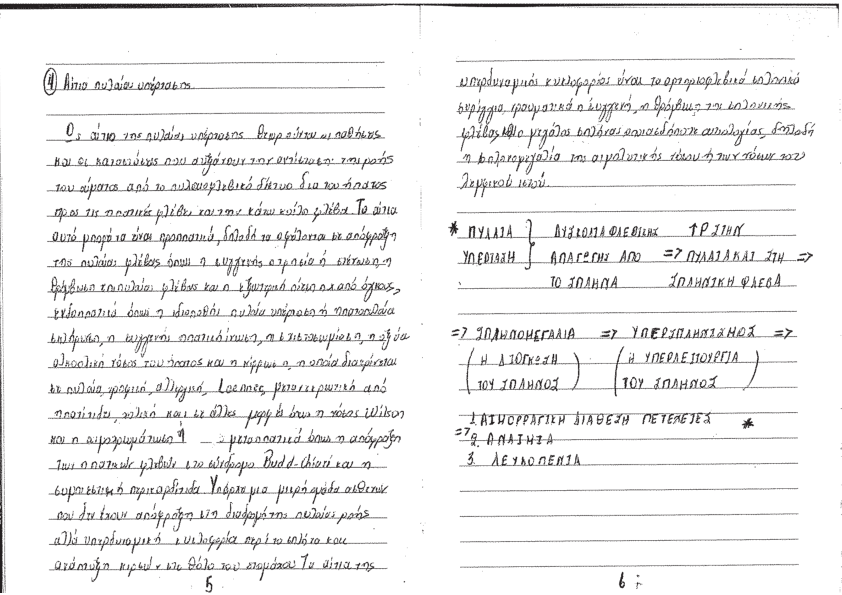 ④ Αίτια πυλαίας υπέρτασης
Ως αίτια της πυλαίας υπέρτασης θεωρούνται οι παθήσεις
και οι καταστάσεις που αυξάνουν την αντίσταση της ροής
του αίματος από το πυλαιοφλεβικό δίκτυο δια του ήπατος
προς τις ηπατικές φλέβες και την κάτω κοίλη φλέβα. Τα αίτια
αυτά μπορεί να είναι προηπατικά, δηλαδή να οφείλονται σε απόφραξη
της πυλαίας φλέβας όπως η συγγενής ατρησία ή στένωση, η
θρόμβωση της πυλαίας φλέβας και η εξωτερική πίεση π.χ. από όγκους,
ενδοηπατικά όπως η ιδιοπαθής πυλαία υπέρταση ή ηπατοπυλαία
σκλήρυνση, η συγγενής ηπατική ίνωση, η σχιστοσωμίαση, η οξεία
αλκοολική νόσος του ήπατος και η κίρρωση, η οποία διακρίνεται
σε πυλαία, τροφική, αλλεργική, Laennec, μετανεκρωτική από
ηπατίτιδα, χολική και σε άλλες μορφές όπως η νόσος Wilson
και η αιμοχρωμάτωση ή μεταηπατικά όπως η απόφραξη
των ηπατικών φλεβών στο σύνδρομο Budd-Chiari και η
συμπιεστική περικαρδίτιδα. Υπάρχει μια μικρή ομάδα ασθενών
που δεν έχουν απόφραξη στη διαδρομή της πυλαίας ροής
αλλά υπερδυναμική κυκλοφορία περί το σπλήνα και
ανάπτυξη κιρσών στο θόλο του στομάχου. Τα αίτια της
5
υπερδυναμικής κυκλοφορίας είναι τα αρτηριοφλεβικά σπληνικά
συρίγγια, τραυματικά ή συγγενή, η θρόμβωση της σπληνικής
φλέβας, και ο μεγάλος σπλήνας οποιασδήποτε αιτιολογίας, δηλαδή
η σπληνομεγαλία της αιμολυτικής νόσου ή των νόσων του
λεμφικού ιστού.
* ΠΥΛΑΙΑ } ΔΥΣΚΟΛΙΑ ΦΛΕΒΙΚΗΣ ↑P ΣΤΗΝ
ΥΠΕΡΤΑΣΗ } ΑΠΑΓΩΓΗΣ ΑΠΟ => ΠΥΛΑΙΑ ΚΑΙ ΣΤΗ =>
ΤΟ ΣΠΛΗΝΑ ΣΠΛΗΝΙΚΗ ΦΛΕΒΑ
=> ΣΠΛΗΝΟΜΕΓΑΛΙΑ => ΥΠΕΡΣΠΛΗΝΙΣΜΟΣ =>
(Η ΔΙΟΓΚΩΣΗ (Η ΥΠΕΡΛΕΙΤΟΥΡΓΙΑ
ΤΟΥ ΣΠΛΗΝΟΣ) ΤΟΥ ΣΠΛΗΝΟΣ)
1. ΑΙΜΟΡΡΑΓΙΚΗ ΔΙΑΘΕΣΗ ΠΕΤΕΧΕΙΕΣ *
=> 2. ΑΝΑΙΜΙΑ
3. ΛΕΥΚΟΠΕΝΙΑ
6